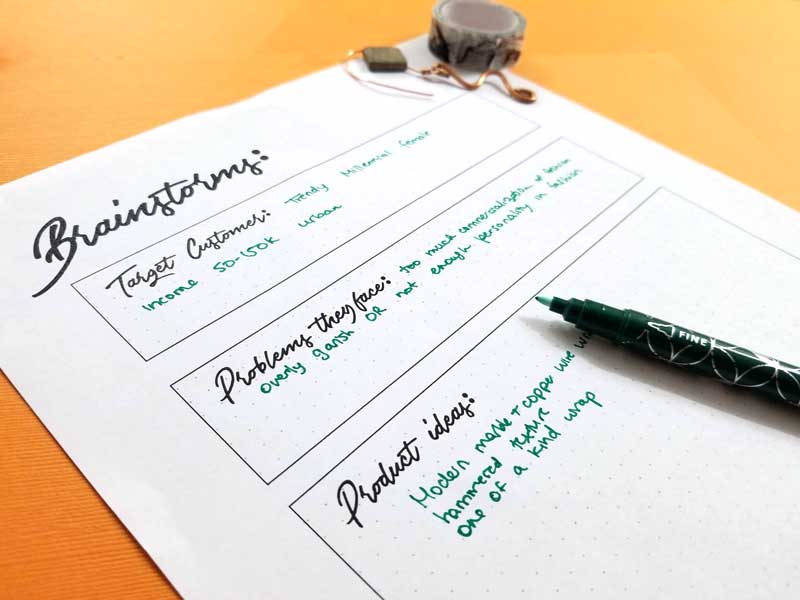 Brainstorms:
Target Customer: Trendy Millennial female
income 50-150K urban
Problems they face: too much commercialization of
overly garish OR not enough personality in fashion
Product ideas:
Modern + wire
hammered texture
one of a kind wrap
FINE